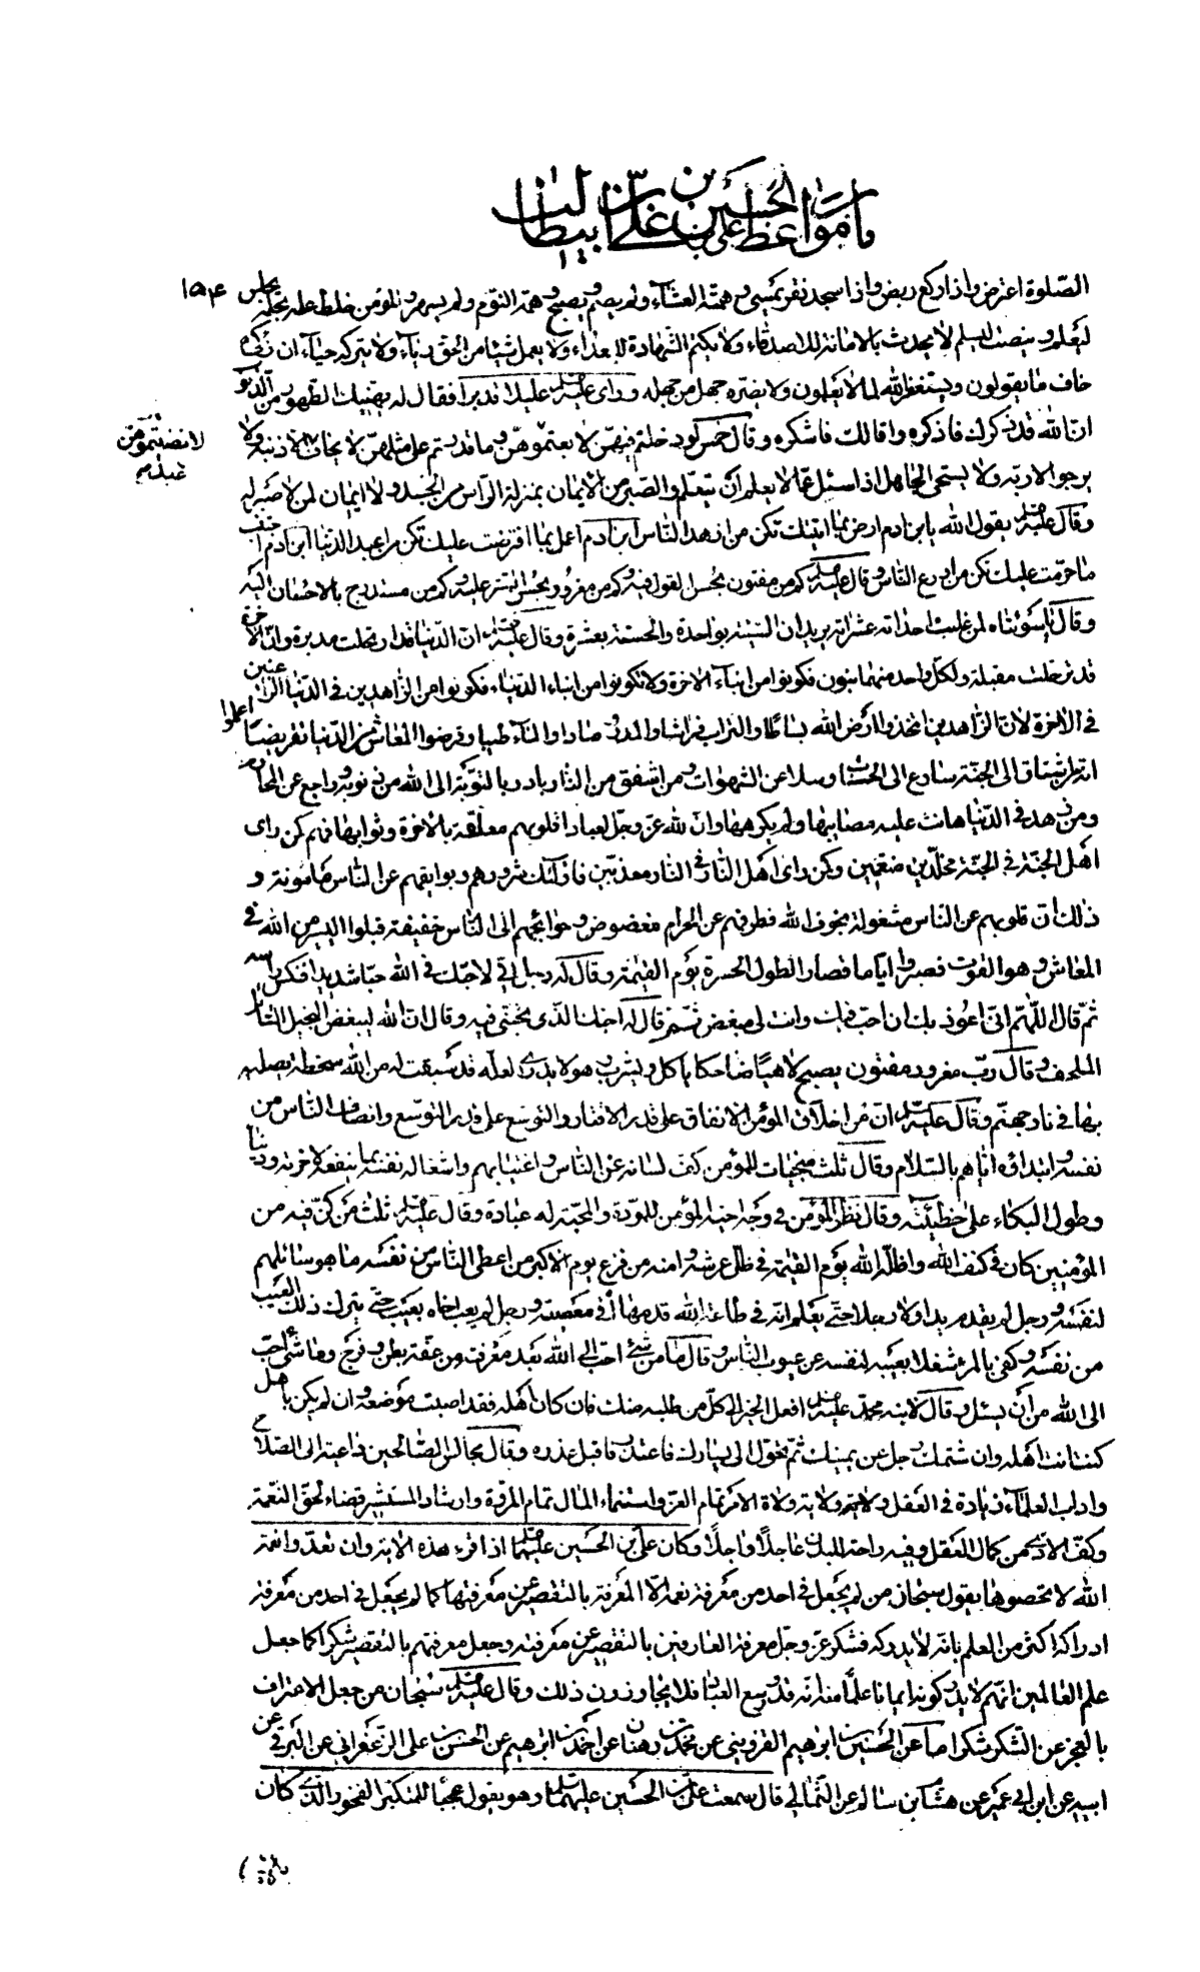 باب مواعظ الحسين بن علي بن علي بن ابيطالب
١٥٤
الصّلوة اعترض واذا ركع ربض واذا سجد نقر يمسي و همّته العشاء ولم يصم و يصبح و همّته النّوم ولم يسهر والمؤمن خلط عمله بحلمه يجلس
ليعلم و ينصت ليسلم لا يحدث بالامانة للاصدقاء ولا يكتم الشهادة للبعداء ولا يعمل شيئا من الحق رياء ولا يتركه حياء ان زكّى
خاف ما يقولون ويستغفر الله لما لا يعلمون ولا يضره جهل من جهله وراى عليه السلم عليلا قد برا فقال له يهنيك الطهور من الذنوب
انّ الله قد ذكرك فاذكره واقالك فاشكره وقال خمس لو رحلتم فيهنّ لا يخاف الا ذنبه ولا
يرجو الا ربّه ولا يستحي الجاهل اذا سئل عمّا لا يعلم ان يتعلم والصّبر من الايمان بمنزلة الرّاس من الجسد ولا ايمان لمن لا صبر له
وقال عليه السلم يقول الله يا بن ادم ارض بما اتيتك تكن من ازهد الناس ابن ادم اعمل بما افترضت عليك تكن من اعبد الناس ابن ادم اجتنب
ما حرّمت عليك تكن من اورع الناس وقال عليه السلم كم من مفتون بحسن القول فيه وكم من مغرور بحسن الستر عليه وكم من مستدرج بالاحسان اليه
وقال يا سوئتاه لمن غلبت احداته عشراته يريد ان السّيئة بواحدة والحسنة بعشرة وقال عليه السلم ان الدّنيا قد ارتحلت مدبرة وانّ الاخرة
قد ترحلت مقبلة ولكلّ واحد منهما بنون فكونوا من ابناء الاخرة ولا تكونوا من ابناء الدّنيا فكونوا من الزّاهدين في الدّنيا الراغبين
في الاخرة لانّ الزّاهدين اتخذوا ارض الله بساطا والتراب فراشا والمدر وسادا والماء طيبا وقرضوا المعاش من الدّنيا تقريضا اعلموا
انه من اشتاق الى الجنّة سارع الى الحسنات وسلا عن الشهوات ومن اشفق من النار بادر بالتّوبة الى الله من ذنوبه وراجع عن المحارم
ومن زهد في الدّنيا هانت عليه مصايبها ولم يكرهها وانّ لله عزّ وجلّ لعبادا قلوبهم معلّقة بالاخرة وثوابها فهم كمن راى
اهل الجنّة في الجنّة مخلّدين منعّمين وكمن راى اهل النار في النار معذّبين فاولئك شرورهم وبوايقهم عن الناس مامونة و
ذلك انّ قلوبهم عن الناس مشغولة بخوف الله فطرفهم عن الحرام مغضوض وحوائجهم الى الناس خفيفة قبلوا اليسير من الله في
المعاش وهو القوت فصبروا ايّاما قصارا لطول الحسرة يوم القيمة وقال له رجل انّي لاحبّك في الله حبّا شديدا فنكس راسه
ثمّ قال اللّهمّ انّي اعوذ بك ان احبّ فيك وانت لي مبغض ثمّ قال له احبك الذّي تحبّني فيه وقال ان الله ليبغض البخيل السائل
الملحف وقال ربّ مغرور مفتون يصبح لاهيا ضاحكا ياكل ويشرب وهو لا يدري لعلّه قد سبقت له من الله سخطة يصلى
بها في نار جهنّم وقال عليه السلم انّ من اخلاق المؤمن الانفاق على قدر الاقتار والتوسّع على قدر التوسّع وانصاف النّاس من
نفسه وابتداؤه ايّاهم بالسّلام وقال ثلث منجيات للمؤمن كفّ لسانه عن النّاس واغتيابهم واشغاله نفسه بما ينفعه لاخرته ودنياه
وطول البكاء على خطيئته وقال نظر المؤمن في وجه اخيه المؤمن للمودّة والمحبّة له عبادة وقال عليه السلم ثلث من كنّ فيه من
المؤمنين كان في كنف الله واظلّه الله يوم القيمة في ظلّ عرشه وامنه من فزع يوم الاكبر من اعطى الناس من نفسه ما هو سائلهم
لنفسه ورجل لم يقدم يدا ولا رجلا حتّى يعلم انّه في طاعة الله قدمها او في معصيته ورجل لم يعب اخاه بعيب حتّى يترك ذلك العيب
من نفسه وكفى بالمرء شغلا بعيبه لنفسه عن عيوب النّاس وقال ما من شئ احبّ الى الله بعد معرفته من عفّة بطن وفرج وما شئ احبّ
الى الله من ان يسئل وقال لابنه محمّد عليه السلم افعل الخير الى كلّ من طلبه منك فان كان اهله فقد اصبت موضعه وان لم يكن باهل
كنت انت اهله وان شتمك رجل عن يمينك ثمّ تحوّل الى يسارك فاعتذر اليك فاقبل عذره وقال مجالس الصّالحين داعية الى الصّلاح
واداب العلماء زيادة في العقل وطاعة ولاة الامر تمام العزّ واستنماء المال تمام المروّة وارشاد المستشير قضاء لحقّ النّعمة
وكفّ الاذى من كمال العقل وفيه راحة للبدن عاجلا واجلا وكان علىّ بن الحسين عليهما السلم اذا قرء هذه الاية وان تعدّوا نعمة
الله لا تحصوها يقول سبحان من لم يجعل في احد من معرفة نعمه الّا المعرفة بالتقصير عن معرفتها كما لم يجعل في احد من معرفة
ادراكه اكثر من العلم بانّه لا يدركه فشكر عزّ وجلّ معرفة العارفين بالتقصير عن معرفته وجعل معرفتهم بالتقصير شكرا كما جعل
علم العالمين انّهم لا يدركونه ايمانا علما منه انّه قد وسع العباد فلا يجاوزون ذلك وقال عليه السلم سبحان من جعل الاعتراف
بالعجز عن الشكر شكرا عن الحسين بن ابرهيم القزويني عن محمّد بن وهبان عن احمد بن ابرهيم عن الحسن بن على الزعفراني عن البرقي عن
ابيه عن ابن ابي عمير عن هشام بن سالم عن الثمالي قال سمعت علىّ بن الحسين عليهما السلم وهو يقول عجبا للمتكبّر الفخور الذّي كان